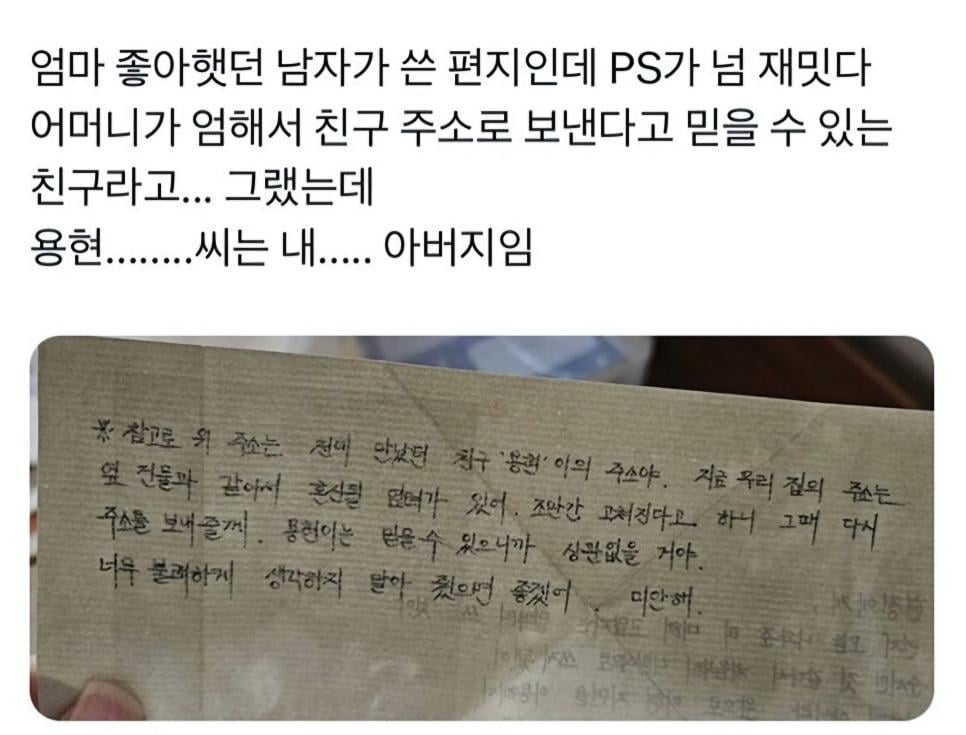 엄마 좋아햇던 남자가 쓴 편지인데 PS가 넘 재밋다
어머니가 엄해서 친구 주소로 보낸다고 믿을 수 있는
친구라고... 그랬는데
용현........씨는 내..... 아버지임
※ 참고로 위 주소는 전에 만났던 친구 '용현'이의 주소야. 지금 우리 집의 주소는
옆 건물과 같아서 혼선될 염려가 있어. 조만간 고쳐진다고 하니 그때 다시
주소를 보내줄게. 용현이는 믿을 수 있으니까 상관없을 거야.
너무 불쾌하게 생각하지 말아 줬으면 좋겠어. 미안해.